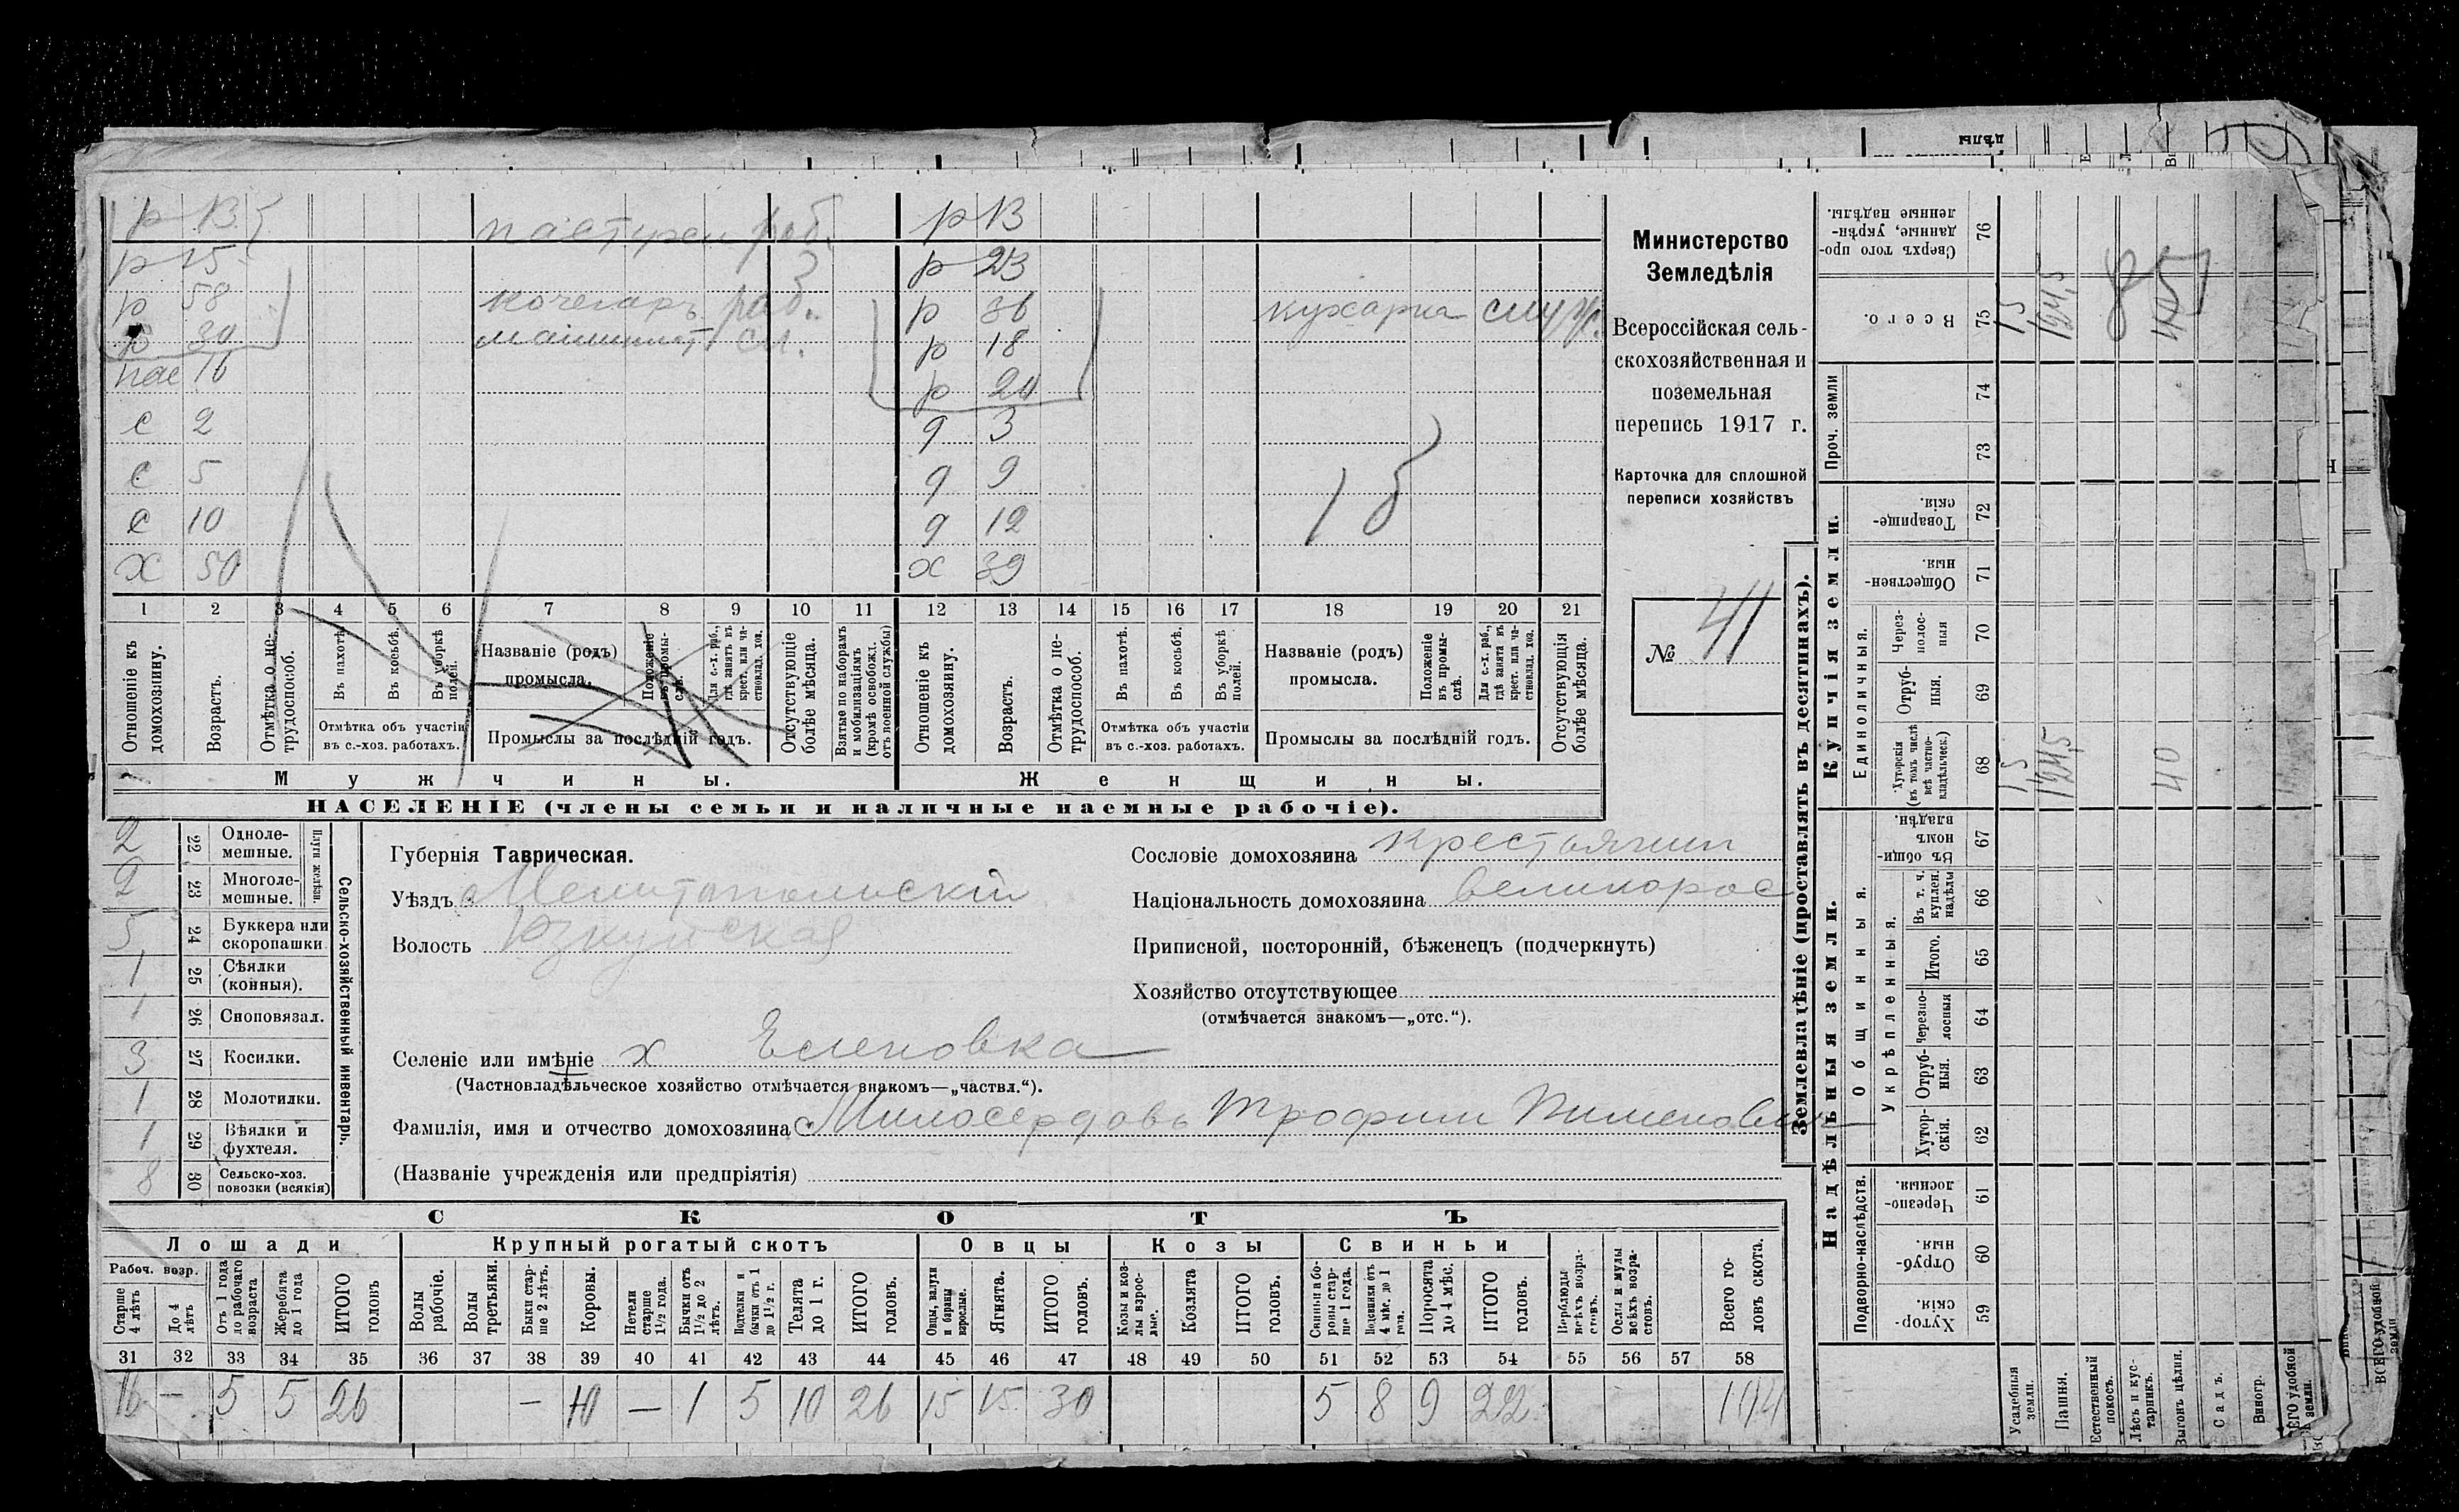 р 13 пастухи раб. р 13
р 15 р 23
р 58 кочегаръ раб. р 36 кухарка служ.
р 30 машинист сл. р 18
пас 16 р 20
с 2 д 3
с 5 д 9
с 10 д 12
х 50 х 39
1 2 3 4 5 6 7 8 9 10 11 12 13 14 15 16 17 18 19 20 21
Отношеніе къ домохозяину.
Возрастъ.
Отмѣтка о не-трудоспособ.
Въ пахотѣ.
Въ косьбѣ.
Въ уборкѣ полей.
Отмѣтка объ участіи
въ с.-хоз. работахъ.
Названіе (родъ)
промысла.
Положеніе въ промы-слѣ.
Для с.-х. раб., гдѣ занятъ въ крест. или ча-стновлад. хоз.
Промыслы за послѣдній годъ.
Отсутствующіе болѣе мѣсяца.
Взятые по наборамъ и мобилизаціямъ (кромѣ освобожд. отъ военной службы)
Отношеніе къ домохозяину.
Возрастъ.
Отмѣтка о не-трудоспособ.
Въ пахотѣ.
Въ косьбѣ.
Въ уборкѣ полей.
Отмѣтка объ участіи
въ с.-хоз. работахъ.
Названіе (родъ)
промысла.
Положеніе въ промы-слѣ.
Для с.-х. раб., гдѣ занята въ крест. или ча-стновлад. хоз.
Промыслы за послѣдній годъ.
Отсутствующія болѣе мѣсяца.
Мужчины. Женщины.
НАСЕЛЕНІЕ (члены семьи и наличные наемные рабочіе).
Министерство
Земледѣлія
Всероссійская сель-
скохозяйственная и
поземельная
перепись 1917 г.
Карточка для сплошной
переписи хозяйствъ
№ 41
2 22 Одноле-мешные.
2 23 Многоле-мешные.
Плуги желѣзн.
5 24 Буккера или скоропашки
1 25 Сѣялки (конныя).
1 26 Сноповязал.
3 27 Косилки.
1 28 Молотилки.
1 29 Вѣялки и фухтеля.
8 30 Сельско-хоз. повозки (всякія)
Сельско-хозяйственный инвентарь.
Губернія Таврическая.
Уѣздъ Мелитопольскій
Волость
Селеніе или имѣніе х Еленовка
(Частновладѣльческое хозяйство отмѣчается знакомъ—„частвл.“).
Фамилія, имя и отчество домохозяина Милосердовъ Трофим Пименович
(Названіе учрежденія или предпріятія)
Сословіе домохозяина крестьянин
Національность домохозяина великорос
Приписной, посторонній, бѣженецъ (подчеркнуть)
Хозяйство отсутствующее
(отмѣчается знакомъ—„отс.“).
СКОТЪ
Лошади Крупный рогатый скотъ Овцы Козы Свиньи
Рабоч. возр.
Старше 4 лѣтъ
До 4 лѣтъ
Отъ 1 года до рабочаго возраста
Жеребята до 1 года
ИТОГО головъ
Волы рабочіе.
Волы третьяки.
Быки стар-ше 2 лѣтъ.
Коровы.
Нетели старше 1½ года.
Бычки отъ 1½ до 2 лѣтъ.
Подтелки и бычки отъ 1 до 1½ г.
Телята до 1 г.
ИТОГО головъ.
Овцы, валухи и бараны взрослые.
Ягнята.
ИТОГО головъ.
Козы и коз-лы взрос-лые.
Козлята
ИТОГО головъ.
Свиньи и бо-ровы стар-ше 1 года.
Подсвинки отъ 4 мѣс. до 1 года.
Поросята до 4 мѣс.
ИТОГО головъ.
Верблюды всѣхъ возра-стовъ.
Ослы и мулы всѣхъ возра-стовъ.
Всего го-ловъ скота.
31 32 33 34 35 36 37 38 39 40 41 42 43 44 45 46 47 48 49 50 51 52 53 54 55 56 57 58
16 — 5 5 26 — 10 — 1 5 10 26 15 15 30 5 8 9 22 104
Землевладѣніе (проставлять въ десятинахъ).
Надѣльныя земли. Купчія земли. Проч. земли
Подворно-наслѣдств. Общинныя. Единоличныя.
Укрѣпленныя.
Хутор-скія. 59
Отруб-ныя. 60
Черезпо-лосныя. 61
Хутор-скія. 62
Отруб-ныя. 63
Черезпо-лосныя 64
Итого. 65
Въ т. ч. куплен. надѣлы 66
Въ общи-номъ владѣн. 67
Хуторскія (въ томъ числѣ всѣ частно-владѣльческ.) 68
Отруб-ныя. 69
Через-полос-ныя 70
Обществен-ныя. 71
Товарище-скія. 72
73
74
Всего. 75
Сверхъ того про-данные, укрѣп-ленные надѣлы. 76
Усадебныя земли. 15 15
Пашня. 124,5 124,5
Естественный покосъ.
Лѣсъ и кус-тарникъ.
Выгонъ цѣлин. 40
Садъ.
Виногр.
ВСЕГО удобной земли